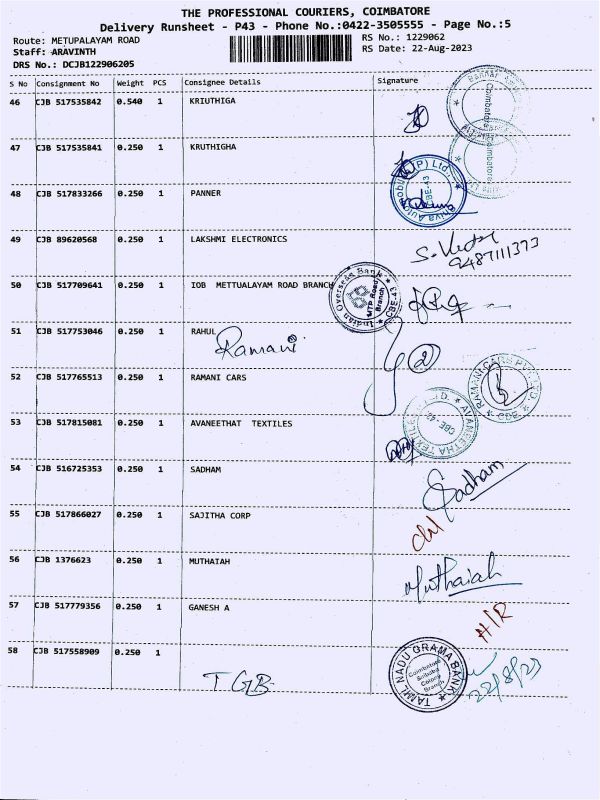 THE PROFESSIONAL COURIERS, COIMBATORE
Delivery Runsheet - P43 - Phone No.:0422-3505555 - Page No.:5
Route: METUPALAYAM ROAD RS No.: 1229062
Staff: ARAVINTH RS Date: 22-Aug-2023
DRS No.: DCJB122906205
S No Consignment No Weight PCS Consignee Details Signature
46 CJB 517535842 0.540 1 KRIUTHIGA
47 CJB 517535841 0.250 1 KRUTHIGHA
48 CJB 517833266 0.250 1 PANNER
49 CJB 89620568 0.250 1 LAKSHMI ELECTRONICS
9487111373
50 CJB 517709641 0.250 1 IOB METTUALAYAM ROAD BRANCH
Indian Overseas Bank
MTP Road
Branch
CBE-43
51 CJB 517753046 0.250 1 RAHUL
Ramani
2
52 CJB 517765513 0.250 1 RAMANI CARS
RAMANI CARS
53 CJB 517815081 0.250 1 AVANEETHAT TEXTILES
AVANEETHA TEXTILE
54 CJB 516725353 0.250 1 SADHAM
Sadham
55 CJB 517866027 0.250 1 SAJITHA CORP
56 CJB 1376623 0.250 1 MUTHAIAH
Muthaiah
57 CJB 517779356 0.250 1 GANESH A
58 CJB 517558909 0.250 1
T.G.B
TAMIL NADU GRAMA BANK
Coimbatore
Colony
Branch
22/8/23